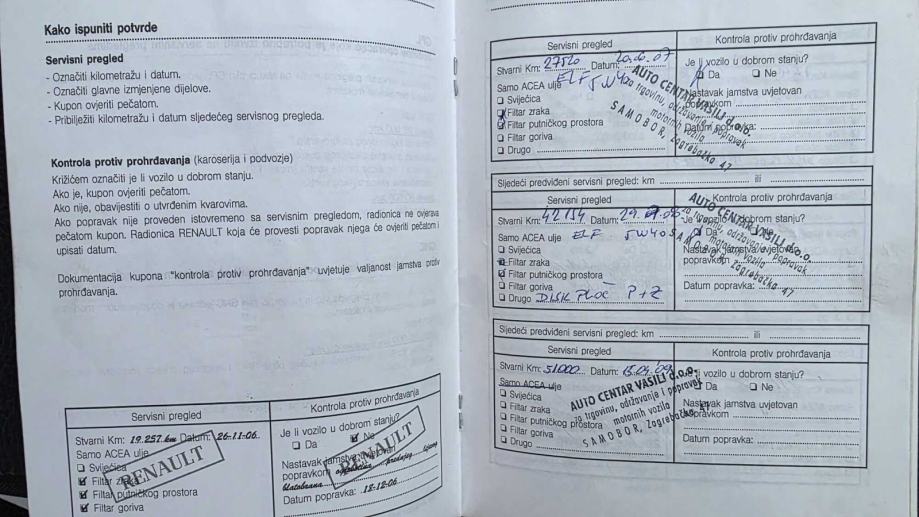 Kako ispuniti potvrde
Servisni pregled
- Označiti kilometražu i datum.
- Označiti glavne izmjenjene dijelove.
- Kupon ovjeriti pečatom.
- Pribilježiti kilometražu i datum sljedećeg servisnog pregleda.
Kontrola protiv prohrđavanja (karoserija i podvozje)
Križićem označiti je li vozilo u dobrom stanju.
Ako je, kupon ovjeriti pečatom.
Ako nije, obavijestiti o utvrđenim kvarovima.
Ako popravak nije proveden istovremeno sa servisnim pregledom, radionica ne ovjerava
pečatom kupon. Radionica RENAULT koja će provesti popravak njega će ovjeriti pečatom i
upisati datum.
Dokumentacija kupona "kontrola protiv prohrđavanja" uvjetuje valjanost jamstva protiv
prohrđavanja.
Servisni pregled
Stvarni Km: 19.257 km Datum: 26-11-06
Samo ACEA ulje
Svjećica
Filtar zraka
Filtar putničkog prostora
Filtar goriva
RENAULT
Kontrola protiv prohrđavanja
Je li vozilo u dobrom stanju?
Da Ne
Nastavak jamstva uvjetovan
popravkom
blatobrana
Datum popravka: 18-12-06
RENAULT
Servisni pregled
Stvarni Km: 27520 Datum: 20.6.07
Samo ACEA ulje ELF 5W40
Svjećica
Filtar zraka
Filtar putničkog prostora
Filtar goriva
Drugo
Kontrola protiv prohrđavanja
Je li vozilo u dobrom stanju?
Da Ne
Nastavak jamstva uvjetovan
popravkom
Datum popravka:
AUTO CENTAR VASILI d.o.o.
za trgovinu, održavanje i popravak
motornih vozila
SAMOBOR, Zagrebačka 47
Sljedeći predviđeni servisni pregled: km ili
Servisni pregled
Stvarni Km: 42154 Datum: 29.
Samo ACEA ulje ELF 5W40
Svjećica
Filtar zraka
Filtar putničkog prostora
Filtar goriva
Drugo DISK PLOČ P+Z
Kontrola protiv prohrđavanja
Je li vozilo u dobrom stanju?
Da
Nastavak jamstva uvjetovan
popravkom
Datum popravka:
AUTO CENTAR VASILI d.o.o.
za trgovinu, održavanje i popravak
motornih vozila
SAMOBOR, Zagrebačka 47
Sljedeći predviđeni servisni pregled: km ili
Servisni pregled
Stvarni Km: 51000 Datum: 15.04.09
Samo ACEA ulje
Svjećica
Filtar zraka
Filtar putničkog prostora
Filtar goriva
Drugo
Kontrola protiv prohrđavanja
Je li vozilo u dobrom stanju?
Da Ne
Nastavak jamstva uvjetovan
popravkom
Datum popravka:
AUTO CENTAR VASILI d.o.o.
za trgovinu, održavanje i popravak
motornih vozila
SAMOBOR, Zagrebačka